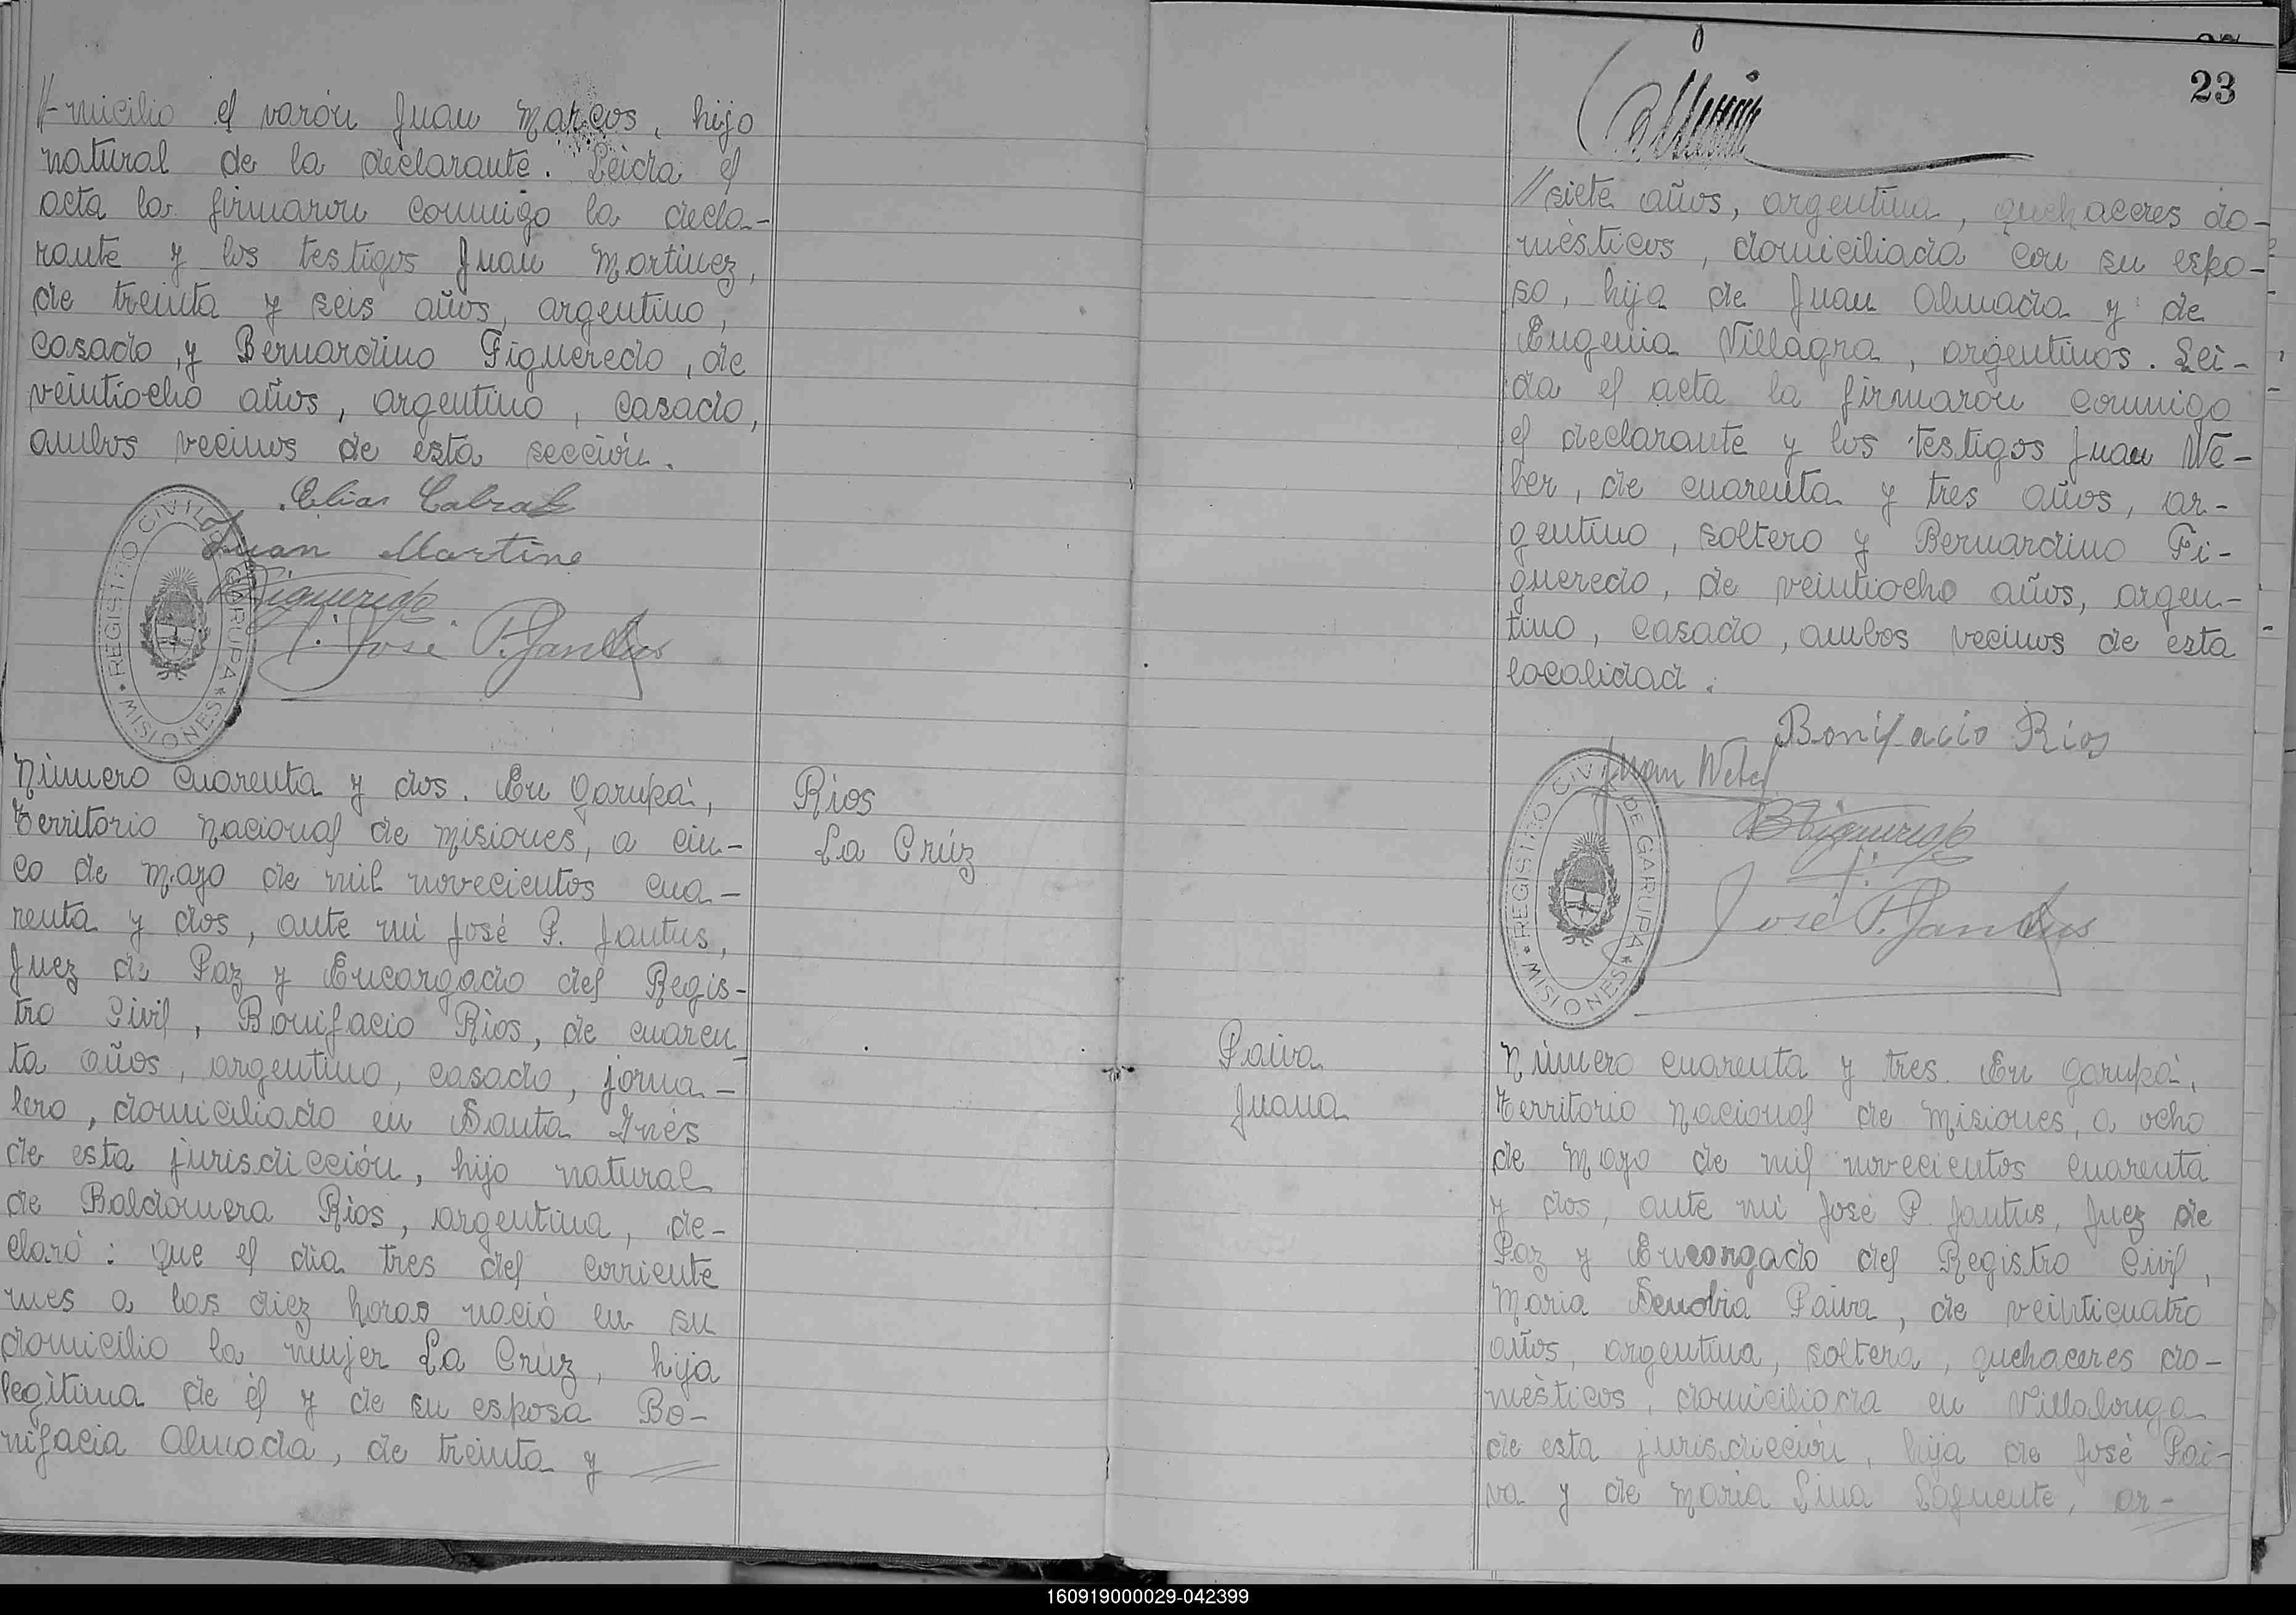 //-micilio el varón Juan Marcos, hijo
natural de la declarante. Leída el
acta la firmaron conmigo la decla-
rante y los testigos Juan Martinez,
de treinta y seis años, argentino,
casado, y Bernardino Figueredo, de
veintiocho años, argentino, casado,
ambos vecinos de esta sección.
Elias Cabral
Juan Martine
BFigueredo
José P. Jantus
REGISTRO CIVIL DE GARUPA
* MISIONES *
Número cuarenta y dos. En Garupá,
Territorio Nacional de Misiones, a cin-
co de Mayo de mil novecientos cua-
renta y dos, ante mí José P. Jantus,
Juez de Paz y Encargado del Regis-
tro Civil, Bonifacio Ríos, de cuaren-
ta años, argentino, casado, jorna-
lero, domiciliado en Santa Inés
de esta jurisdicción, hijo natural
de Baldomera Ríos, argentina, de-
claró: Que el día tres del corriente
mes a las diez horas nació en su
domicilio la mujer La Crúz, hija
legítima de él y de su esposa Bo-
nifacia Almada, de treinta y
Ríos
La Crúz
23
//siete años, argentina, quehaceres do-
mésticos, domiciliada con su espo-
so, hija de Juan Almada y de
Eugenia Villagra, argentinos. Leí-
da el acta la firmaron conmigo
el declarante y los testigos Juan We-
ber, de cuarenta y tres años, ar-
gentino, soltero y Bernardino Fi-
gueredo, de veintiocho años, argen-
tino, casado, ambos vecinos de esta
localidad.
Bonifacio Rios
Juan Weber
BFigueredo
José P. Jantus
REGISTRO CIVIL DE GARUPA
* MISIONES *
Paiva
Juana
Número cuarenta y tres. En Garupá,
Territorio Nacional de Misiones, a ocho
de Mayo de mil novecientos cuarenta
y dos, ante mí José P. Jantus, Juez de
Paz y Encargado del Registro Civil,
María Senobia Paiva, de veinticuatro
años, argentina, soltera, quehaceres do-
mésticos, domiciliada en Villalonga
de esta jurisdicción, hija de José Pai-
va y de María Lina Lafuente, ar-
160919000029-042399